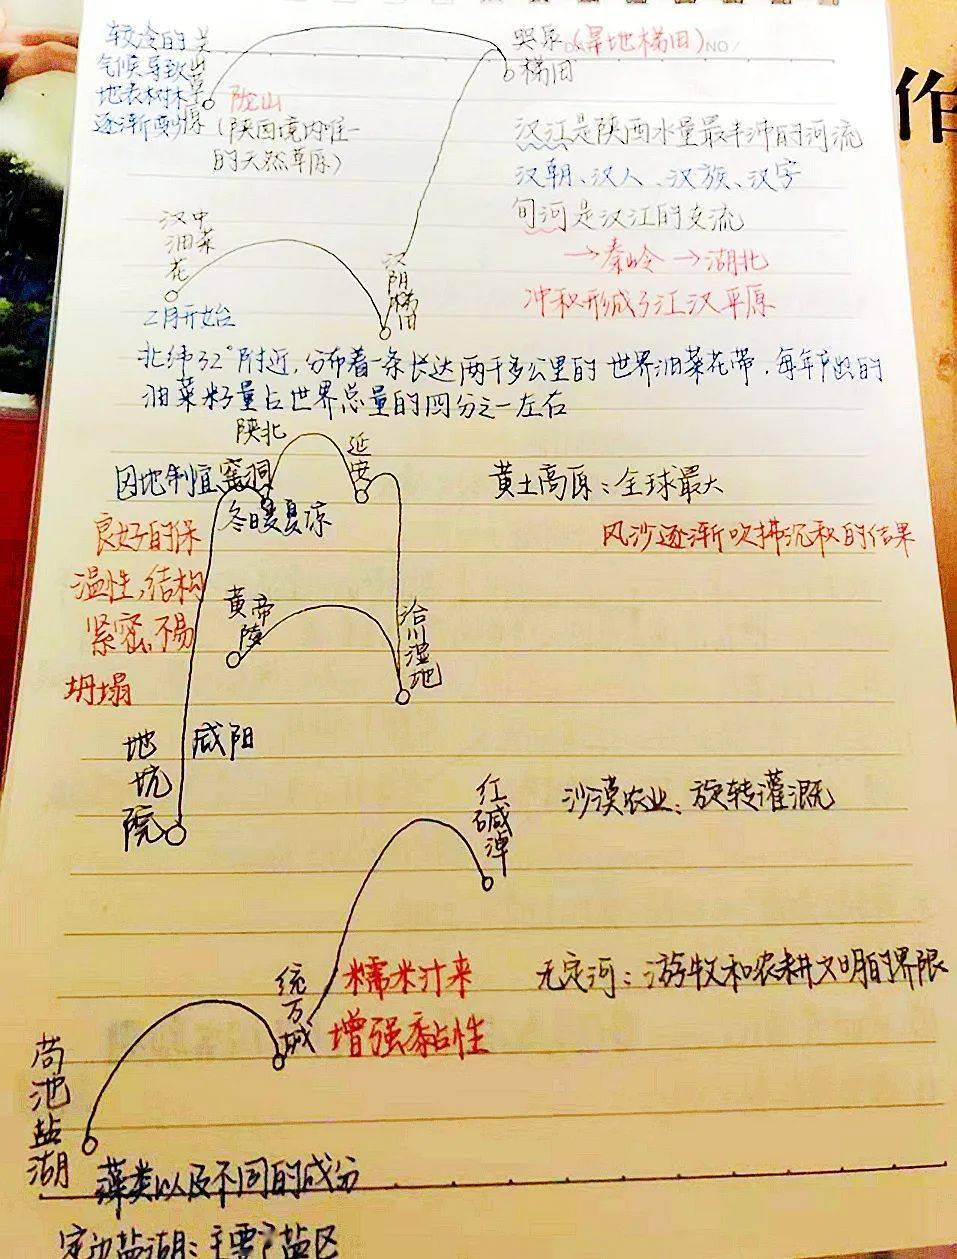 较冷的
气候导致
地表树木
逐渐减少
关山草原
陇山
(陕西境内唯一
的天然草原)
NO
(旱地梯田)
梯田
作
汉江是陕西水量最丰沛的河流
汉朝、汉人、汉族、汉字
旬河是汉江的支流
→秦岭→湖北
冲积形成了江汉平原
汉中
油菜
花
2月开始
汉阴梯田
北纬32°附近,分布着一条长达两千多公里的世界油菜花带,每年产出的
油菜籽量占世界总量的四分之一左右
陕北
窑洞
延安
因地制宜
冬暖夏凉
黄土高原:全球最大
风沙逐渐吹拂沉积的结果
良好的保
温性,结构
紧密,不易
坍塌
黄帝
陵
洽川湿地
地坑院
咸阳
红碱淖
沙漠农业:旋转灌溉
统万城
糯米汁来
增强黏性
无定河:游牧和农耕文明的界限
苟池盐湖
藻类以及不同的成分
定边盐湖:主要产盐区